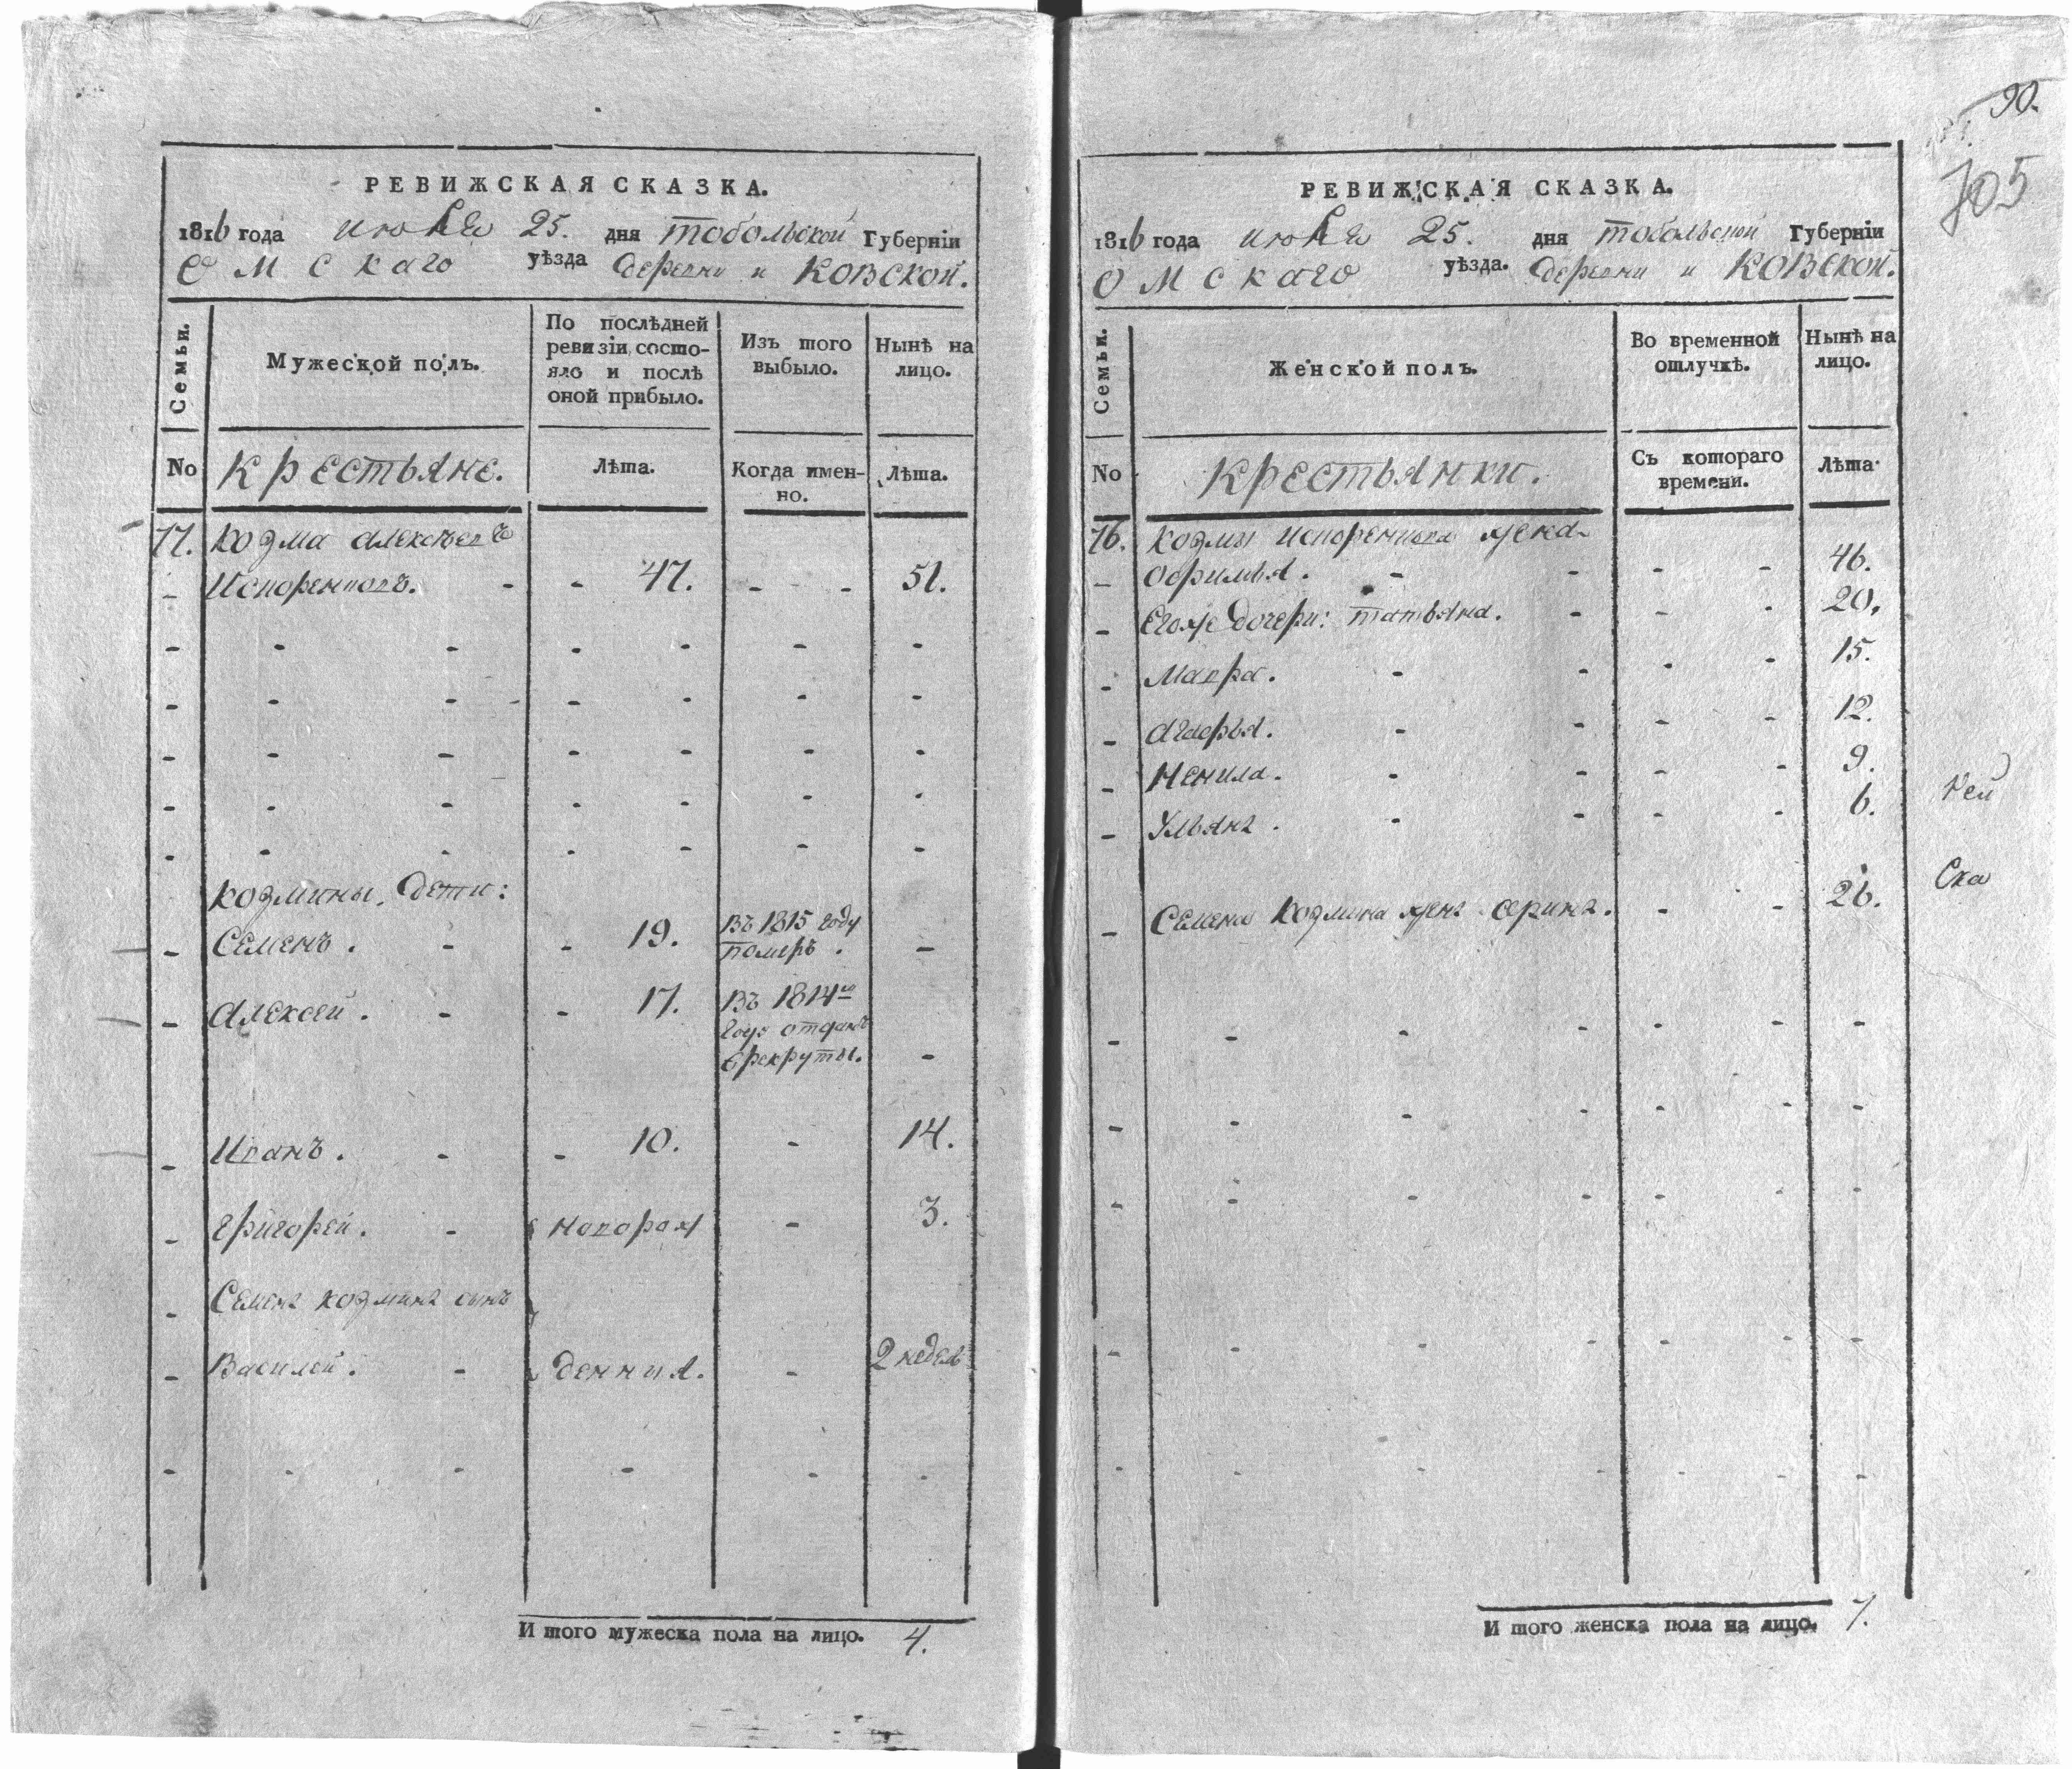 РЕВИЖСКАЯ СКАЗКА.
1816 года июля 25. дня тобольской Губерніи
Омскаго уѣзда деревни и Ковской.
Семьи.
Мужеской полъ.
По послѣдней ревизіи состояло и послѣ оной прибыло.
Изъ того выбыло.
Нынѣ на лицо.
No Крестьяне. Лѣта. Когда именно. Лѣта.
77. Козма Алексѣевъ
Испоренковъ. - - 47. - - 51.
Козмины дети:
Семенъ. - - 19. Въ 1815 году померъ. -
Алексей. - - 17. Въ 1814м году отданъ в рекруты. -
Иванъ. - - 10. - 14.
Григорей. - новорож - 3.
Семена Козмина сынъ
Василей. - денныя. - 2 недель
И того мужеска пола на лицо. 4.
90.
705
РЕВИЖСКАЯ СКАЗКА.
1816 года июля 25. дня тобольской Губерніи
Омскаго уѣзда. деревни и Ковской.
Семьи.
Женской полъ.
Во временной отлучкѣ.
Нынѣ на лицо.
No Крестьянки. Съ котораго времени. Лѣта
76. Козмы жена
- - - - 46.
Егоже дочери: татьяна. - - - 20.
Мавра. - - - - 15.
- - - - 12.
Ненила. - - - - 9.
Ульяна. - - - - 6.
Семена Козмина жена - - 26.
Ска
И того женска пола на лицо. 7.